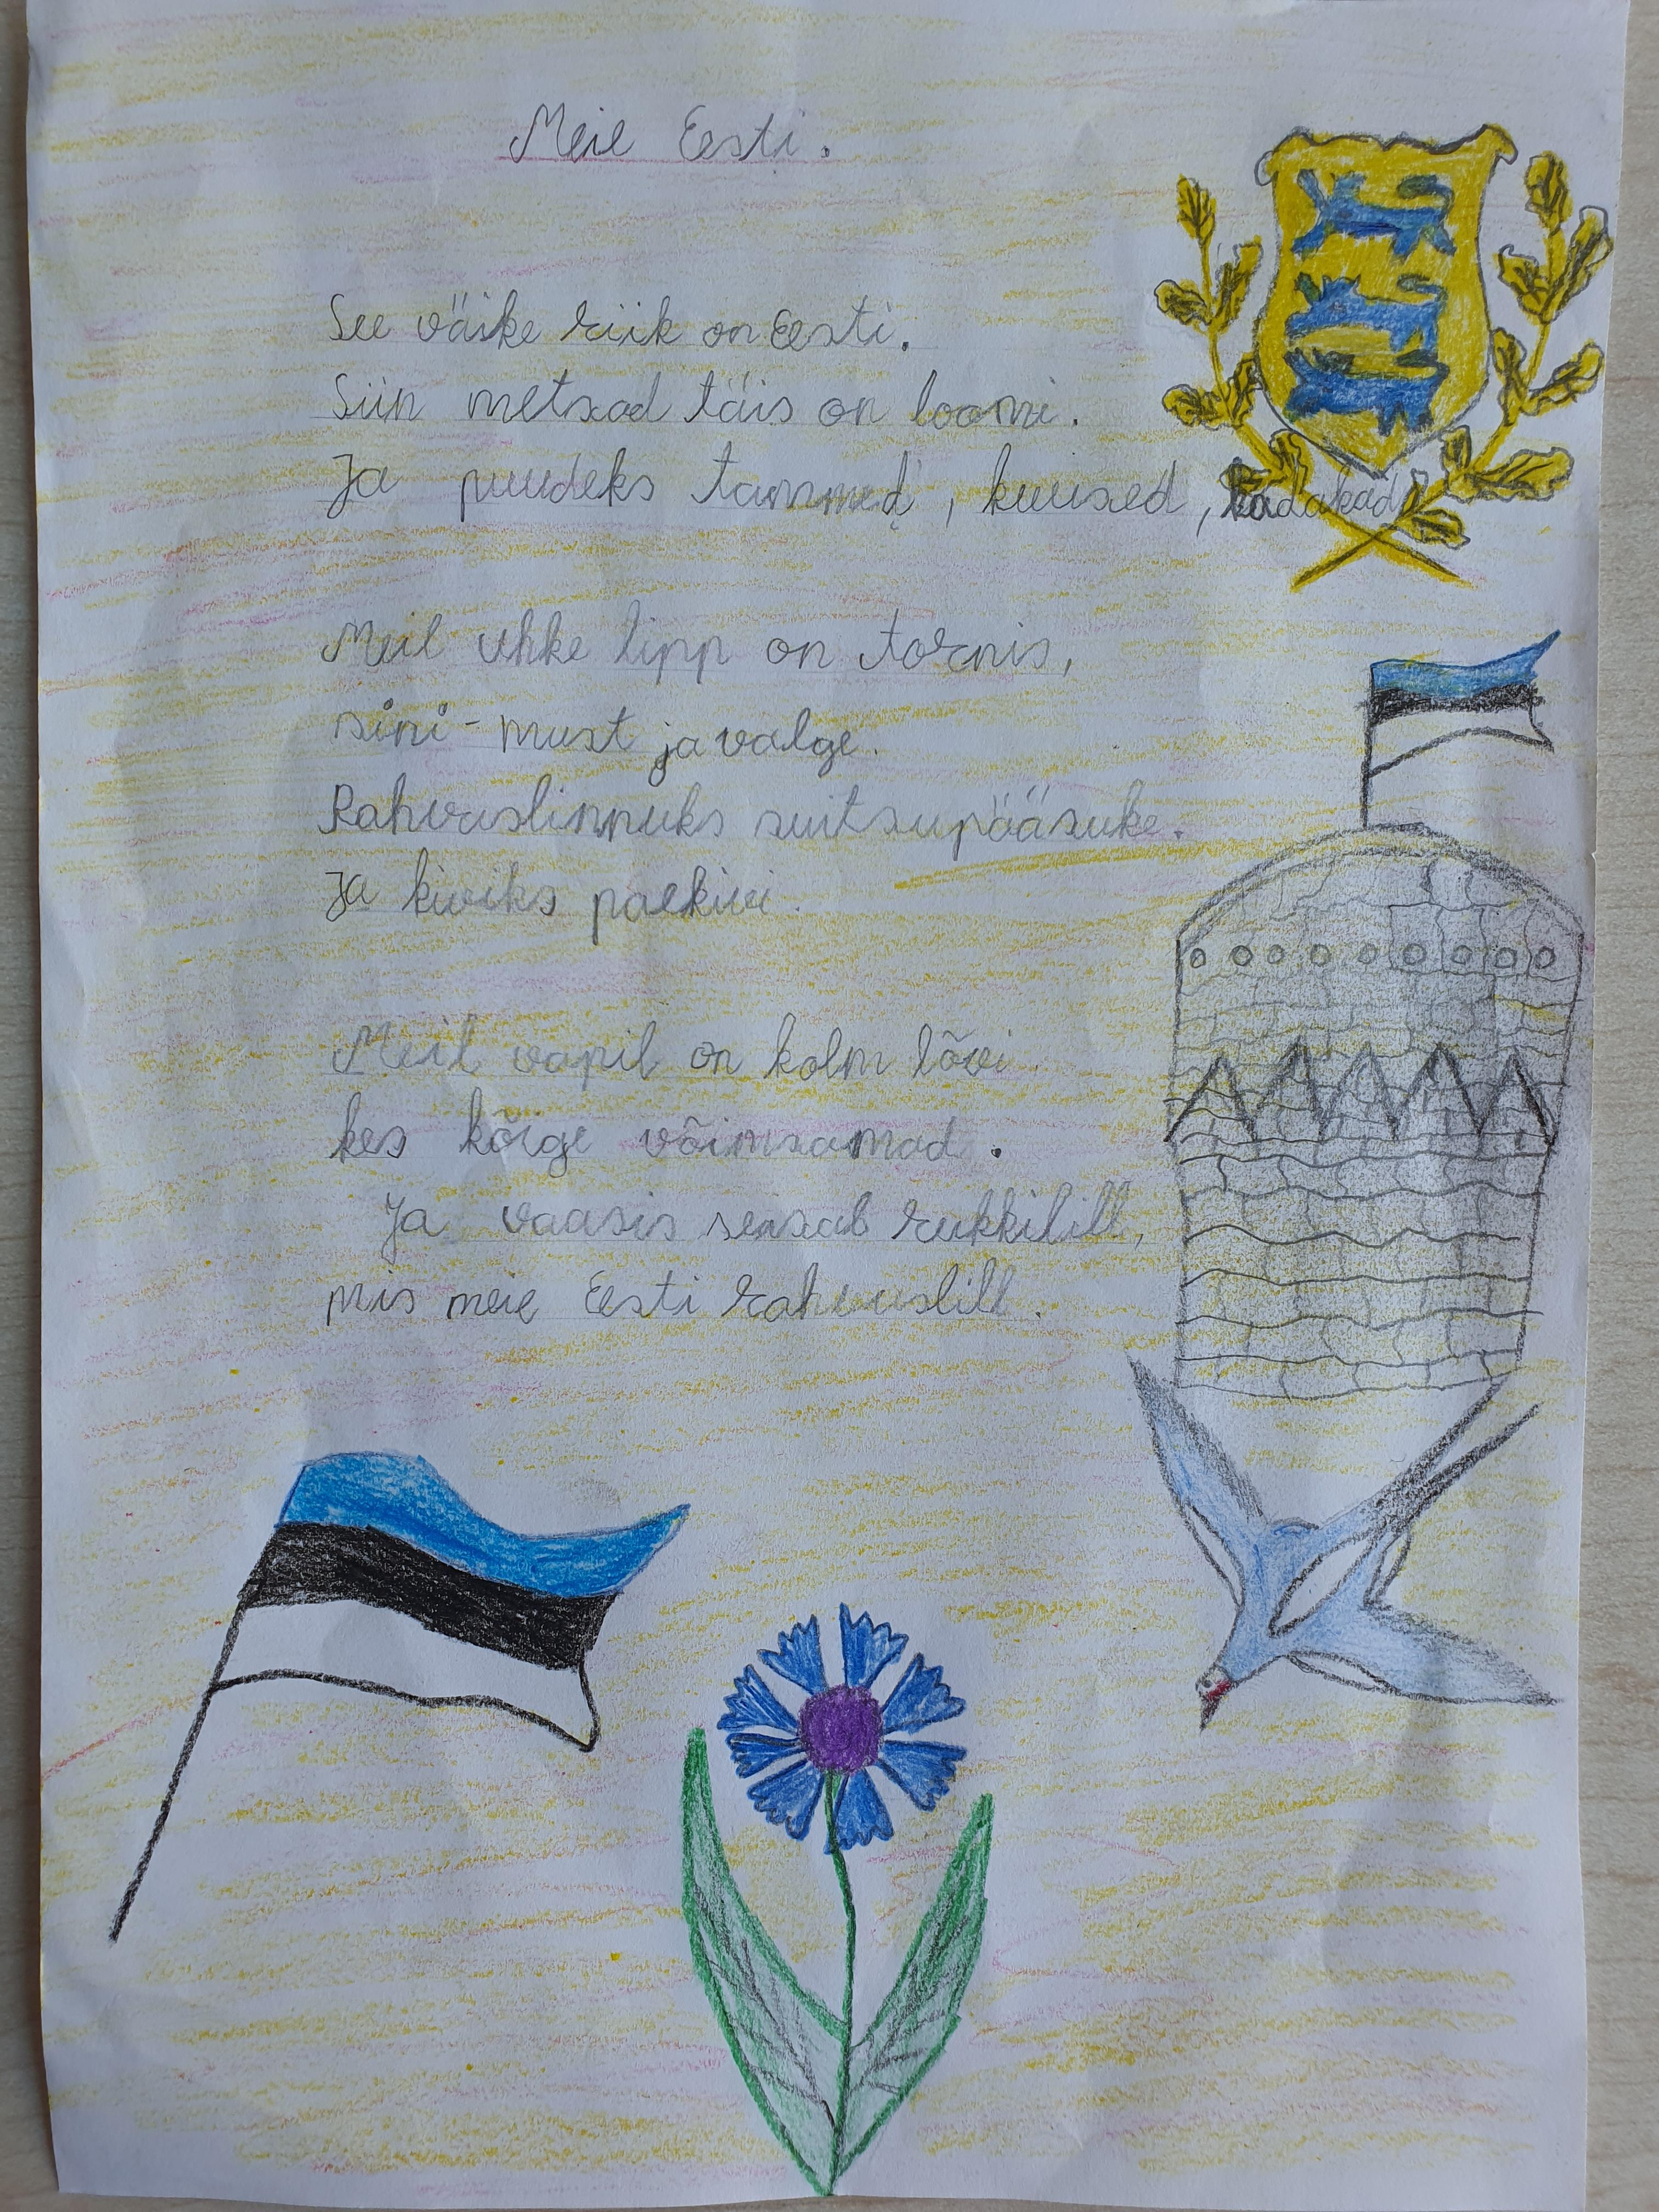 Meie Eesti.
See väike riik on Eesti.
Siin metsad täis on loomi.
Ja puudeks tammed, kuused, kadakad
Meil uhke lipp on tornis,
sini-must ja valge.
Rahvuslinnuks suitsupääsuke.
Ja kiviks paekivi.
Meil vapil on kolm lõvi
kes kõige võimsamad.
Ja vaasis seisab rukkilill,
mis meie Eesti rahvuslill.